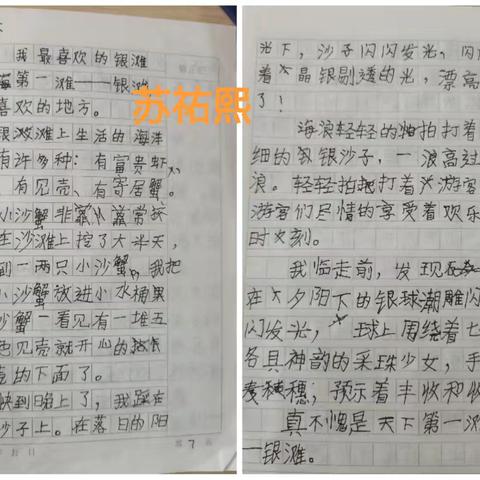 我最喜欢的银滩
第一滩——银滩
喜欢的地方。
银滩滩上生活的海洋
有许多种：有富贵虾
、有贝壳、有寄居蟹。
小沙蟹非常
在沙滩上挖了大半天，
到一两只小沙蟹，我把
小沙蟹放进小水桶里
沙蟹一看见有一堆五
色贝壳就开心的
的下面了。
快到晚上了，我踩在
沙子上。在落日的阳
第7页
苏祐熙
光下，沙子闪闪发光，闪
着晶银剔透的光，漂亮
了！
海浪轻轻的拍打着
细的银沙子，一浪高过
浪。轻轻拍打着游客
游客们尽情的享受着欢乐
时刻。
我临走前，发现
在夕阳下的银球潮雕闪
闪发光，球上周围绕着七
各具神韵的采珠少女，手
麦穗，预示着丰收和
真不愧是天下第一滩
—银滩。